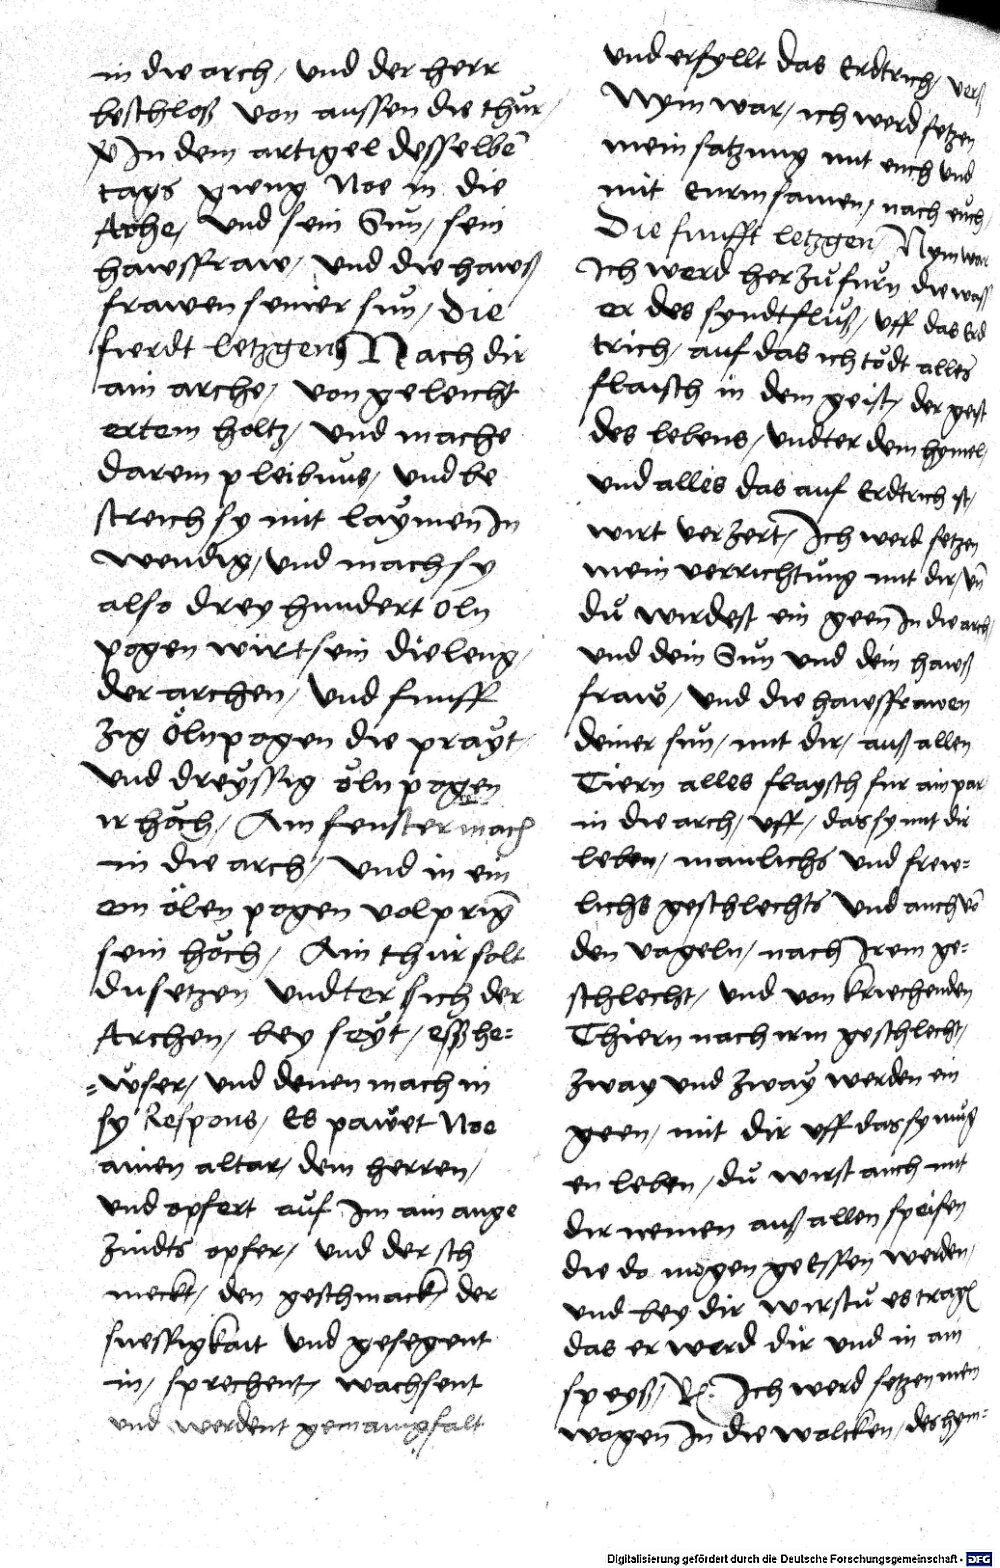 in die arch / und der herr
beschloß von aussen die thür /
In dem artigel desselbē
tags gieng Noe in die
Arche / und sein Sun / sein
hawssfraw / und die hawß
frawen seiner sun / Die
fierdt letzgen Nach dir
ain arche / von geleicht
ertem holtz / und mache
darein pleibung / und be
streich sy mit laymen In
wendig / und mach sy
also drey hundert öln
pogen wirt sein die leng /
der archen / und funff
zig ölnpogen die prayt /
und dreyssig öln pogen
ir höch / Ain fenster mach
in die arch / und in ein
en ölen pogen volpring
sein höch / Ain thür solt
du setzen undter sich der
Archen / bey seyt / esß he=
=wser / und denen mach in
sy Respons / Es pawet Noe
ainen altar / dem herren /
und opfert auf Im ain ange
zindts opfer / und der sch
meckt / den geschmack der
suessigkait und gesegent
in / sprechent / wachsent
und werdent gemanigfalt
und erfyllt das Erdtrich / verß
Nym war / ich werd setzen
mein satzung mit euch und
mit eurm samen / nach euch /
Die funfft letzgen / Nym war
Ich werd herzu furn die wass
er des syndtfluß / uff das Erd
trich / auf das ich tödt alles
flaisch in dem geist / der geist
des lebens / undter dem hymel /
und alles das auf Erdtrich ist /
wirt verzert / Ich werd setzen
mein verrichtung mit dir / uñ
du wirdest ein geen In die arch /
und dein Sun und dein hawß
fraw / und die hawssfrawen
deiner sun / mit dir / auß allen
Tiern alles flaysch fur ain par
in die arch / uff / das sy mit dir
leben / manlichs und frew=
lichs geschlechts und auch vō
den vogeln / nach Irem ge=
schlecht / und von kriechenden
Thiern nach irm geschlecht /
zway und zway werden ein
geen / mit dir uff das sy mug
en leben / du wirst auch mit
dir nemen auß allen speisen
die do mögen geessen werden /
und bey dir wirstu es tragē
das er werd dir und in ain
speyß / R. Ich werd setzen mein
wogen In die wolcken / des hym=
Digitalisierung gefördert durch die Deutsche Forschungsgemeinschaft - DFG